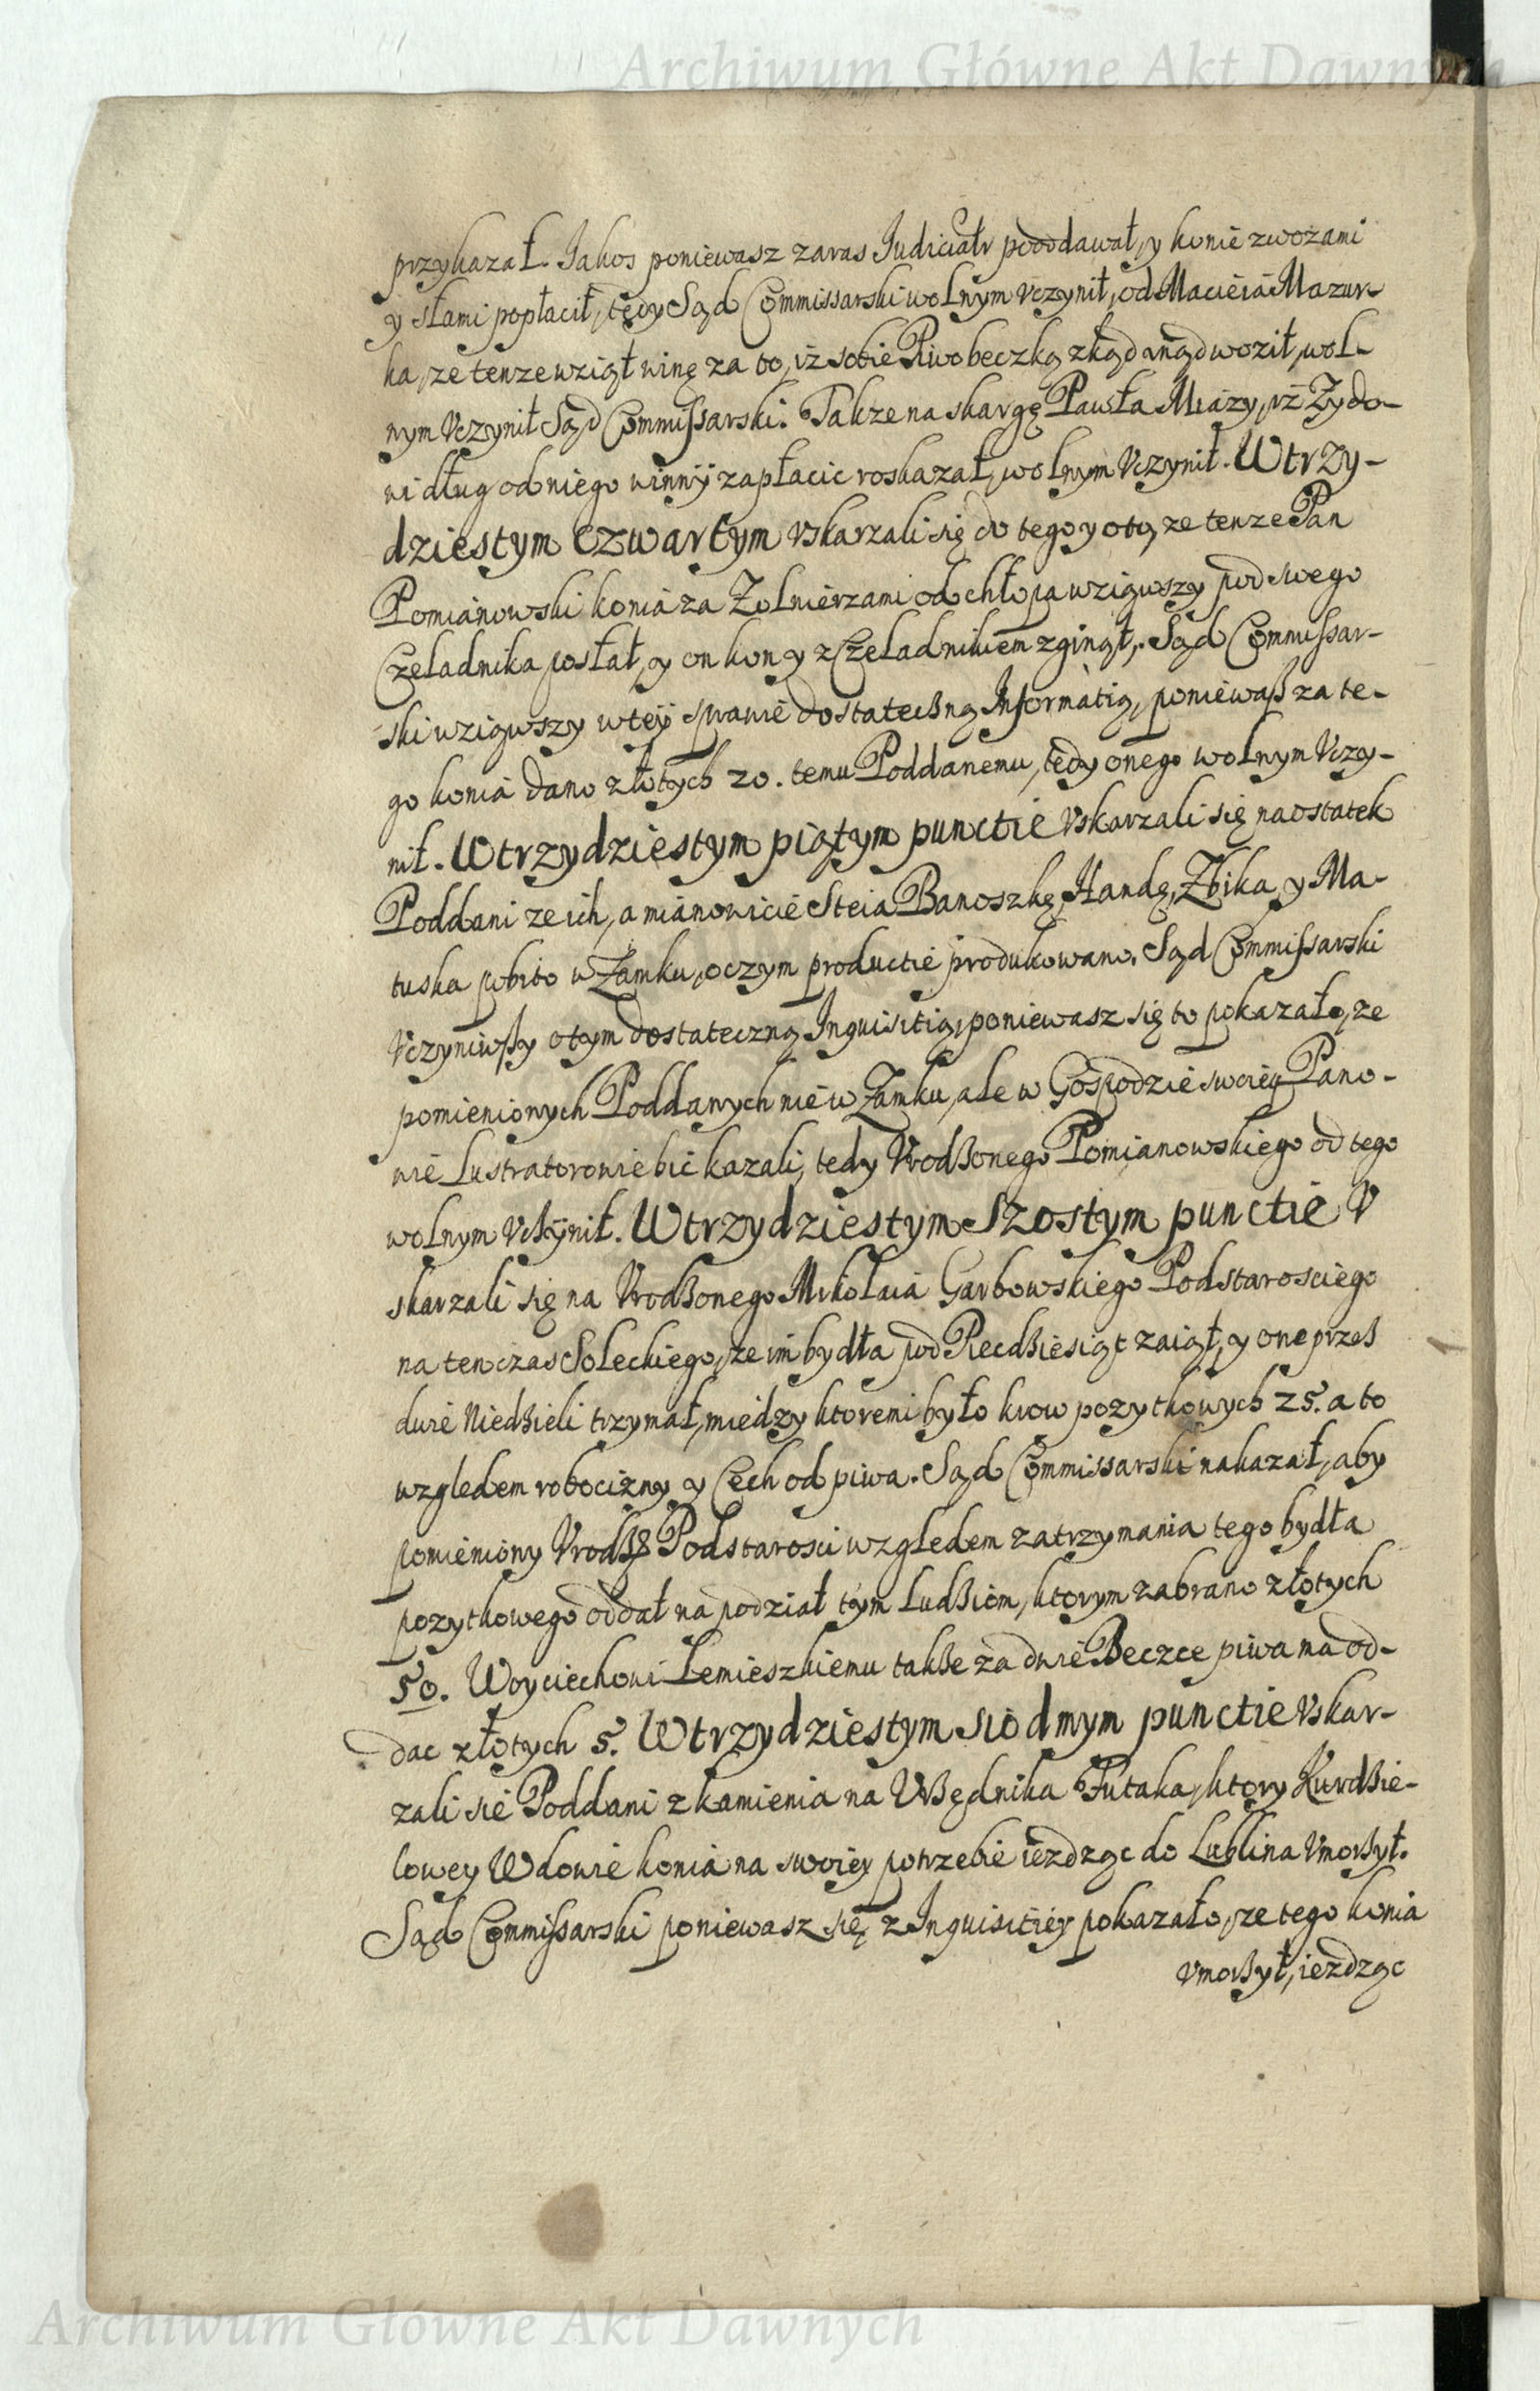 Archiwum Główne Akt Dawnych
przykazał. Jakos poniewasz zaras Judicialr pooddawał, y konie zwozami
y słami popłacił, tedy Sąd Commissarski wolnym vczynił, od Macieia Mazur-
ka, ze tenze wziął winę za to, iz sobie Piwo beczką zkąd inąd woził, wol-
nym Vczynił Sąd Commissarski. Takze na skargę Pawła Miazy, iż Zydo-
wi dług od niego winny zapłacic roskazał, wolnym Vczynił. W trzy-
dziestym czwartym vskarzali się do tego y oto, ze tenze Pan
Pomianowski konia za Zolnierzami od chłopa wziąwszy pod swego
Czeladnika posłał, y on kon y z Czeladnikiem zginął. Sąd Commissar-
ski wziąwszy w tey sprawie dostateczną Informatią, poniewasz za te-
go konia dano złotych 20. temu Poddanemu, tedy onego wolnym Vczy-
nił. W trzydziestym piątym punctie vskarzali się naostatek
Poddani ze ich, a mianowicie Steia Banoszkę, Handę, Zbika, y Ma-
tuska pobito w Zamku, o czym productie produkowano. Sąd Commissarski
Vczyniwszy o tym dostateczną Inquisitią, poniewasz się to pokazało, ze
pomienionych Poddanych nie w Zamku, ale w Gospodzie swoiey Pano-
wie Lustratorowie bić kazali, tedy Vrodzonego Pomianowskiego od tego
wolnym vczynił. W trzydziestym szostym punctie V
skarzali się na Vrodzonego Mikołaia Garbowskiego Podstarosciego
na ten czas Soleckiego, ze im bydła pod Piecdziesiąt zaiął, y one przez
dwie Niedzieli trzymał, miedzy ktoremi było krow pozytkowych 25. a to
względem robocizny y Cech od piwa. Sąd Commissarski nakazał, aby
pomieniony Vrodz: Podstarosci względem zatrzymania tego bydła
pozytkowego oddał na podział tym ludziom, ktorym zabrano złotych
50. Woyciechowi Lemieszkiemu takze za dwie Beczce piwa ma od-
dac złotych 5. W trzydziestym siodmym punctie vskar-
zali sie Poddani z kamienia na Vrzędnika Tutaka, ktory Kurdzie-
lowey Wdowie konia na swoiey potrzebie iezdząc do Lublina Vmorzył.
Sąd Commissarski poniewasz się z Inquisitiey pokazało, ze tego konia
vmorzył, iezdząc
Archiwum Główne Akt Dawnych